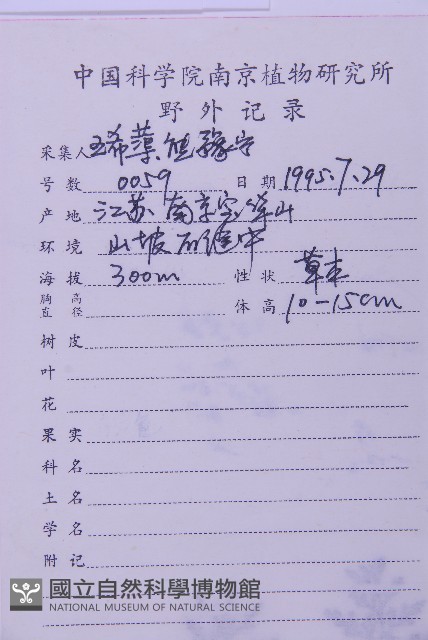 中国科学院南京植物研究所
野外记录
采集人 王希蕖 熊豫宁
号数 0059 日期 1995.7.29
产地 江苏 南京 宝华山
环境 山坡石缝中
海拔 300m 性状 草本
胸高直径 体高 10-15cm
树皮
叶
花
果实
科名
土名
学名
附记
國立自然科學博物館
NATIONAL MUSEUM OF NATURAL SCIENCE